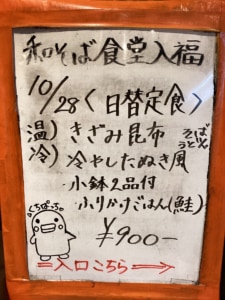 和そば食堂入福
10/28〈日替定食〉
温)きざみ昆布
冷)冷やしたぬき風
そば
うどん
・小鉢2品付
・ふりかけごはん(鮭)
¥900-
⇒入口こちら→